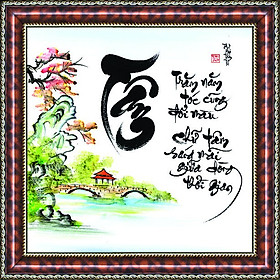 Tâm
Trăm năm
tóc cũng
đổi màu
chữ Tâm
sáng mãi
giữa dòng
thời gian